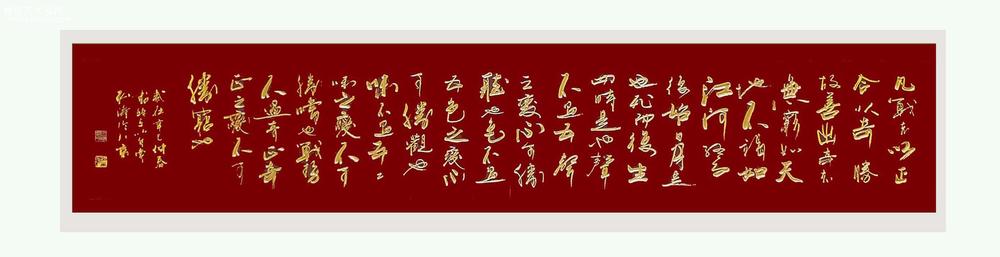 凡戰者以正
合以奇勝
故善出奇者
無窮如天
地不竭如
江河終
復始日月是
也死而復生
四時是也聲
不過五聲
之變不可勝
聽也色不過
五色之變不
可勝觀也
味不過五々
味之變不可
勝嚐也戰勢
不過奇正奇
正之變不可
勝窮也